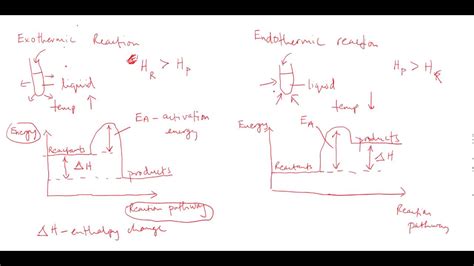 Exothermic Reaction
H_R > H_P
liquid
temp ↑
EA - activation
energy
Energy
Reactants
ΔH
products
Reaction pathway
ΔH - enthalpy change
Endothermic reaction
H_P > H_R
liquid
temp ↓
Energy
EA
products
Reactants
ΔH
Reaction
pathway